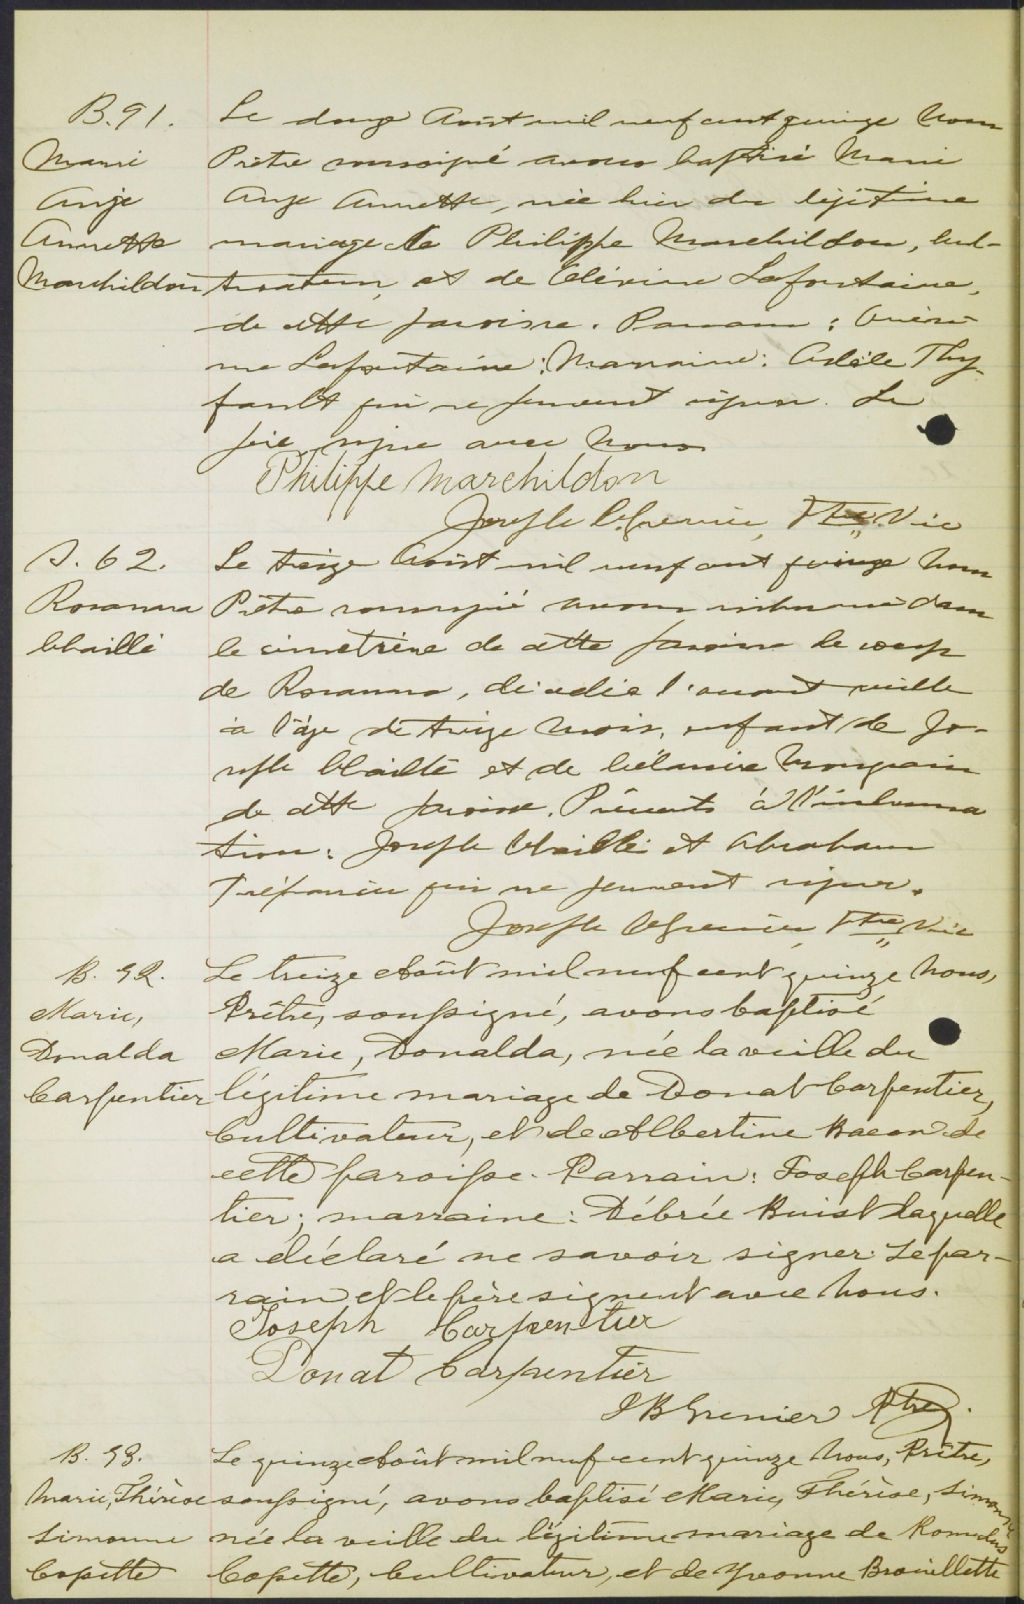 B. 91.
Marie
Ange
Annette
Marchildon
Le douze Août mil neuf cent quinze Nous
Prêtre soussigné avons baptisé Marie
Ange Annette, née hier du légitime
mariage de Philippe Marchildon, cul-
tivateur, et de Lafontaine,
de cette paroisse. Parrain :
me Lafontaine ; Marraine : Adèle Thy-
fault qui ne peuvent signer. Le
père signe avec Nous
Philippe Marchildon
Joseph Ptre Vic
S. 62.
Rosanna
Chaillé
Le treize Août mil neuf cent quinze Nous
Prêtre soussigné avons inhumé dans
le cimetière de cette paroisse le corps
de Rosanna, décédée l'avant veille
à l'âge de treize mois, enfant de Jo-
seph Chaillé et de Mongrain
de cette paroisse. Présents à l'inhuma
tion : Joseph Chaillé et Abraham
Trépanier qui ne peuvent signer.
Joseph Ptre Vic
B. 92.
Marie,
Donalda
Carpentier
Le treize Août mil neuf cent quinze Nous,
Prêtre, soussigné, avons baptisé
Marie, Donalda, née la veille du
légitime mariage de Donat Carpentier,
Cultivateur, et de Albertine Bacon de
cette paroisse. Parrain : Joseph Carpen-
tier ; marraine : Débrée Buist laquelle
a déclaré ne savoir signer. Le par-
rain et le père signent avec Nous.
Joseph Carpentier
Donat Carpentier
J B Grenier Ptre.
B. 93.
Marie, Thérèse
Simonne
Cosette
Le quinze Août mil neuf cent quinze Nous, Prêtre,
soussigné, avons baptisé Marie, Thérèse, Simonne
née la veille du légitime mariage de Romulus
Cosette, Cultivateur, et de Yvonne Brouillette